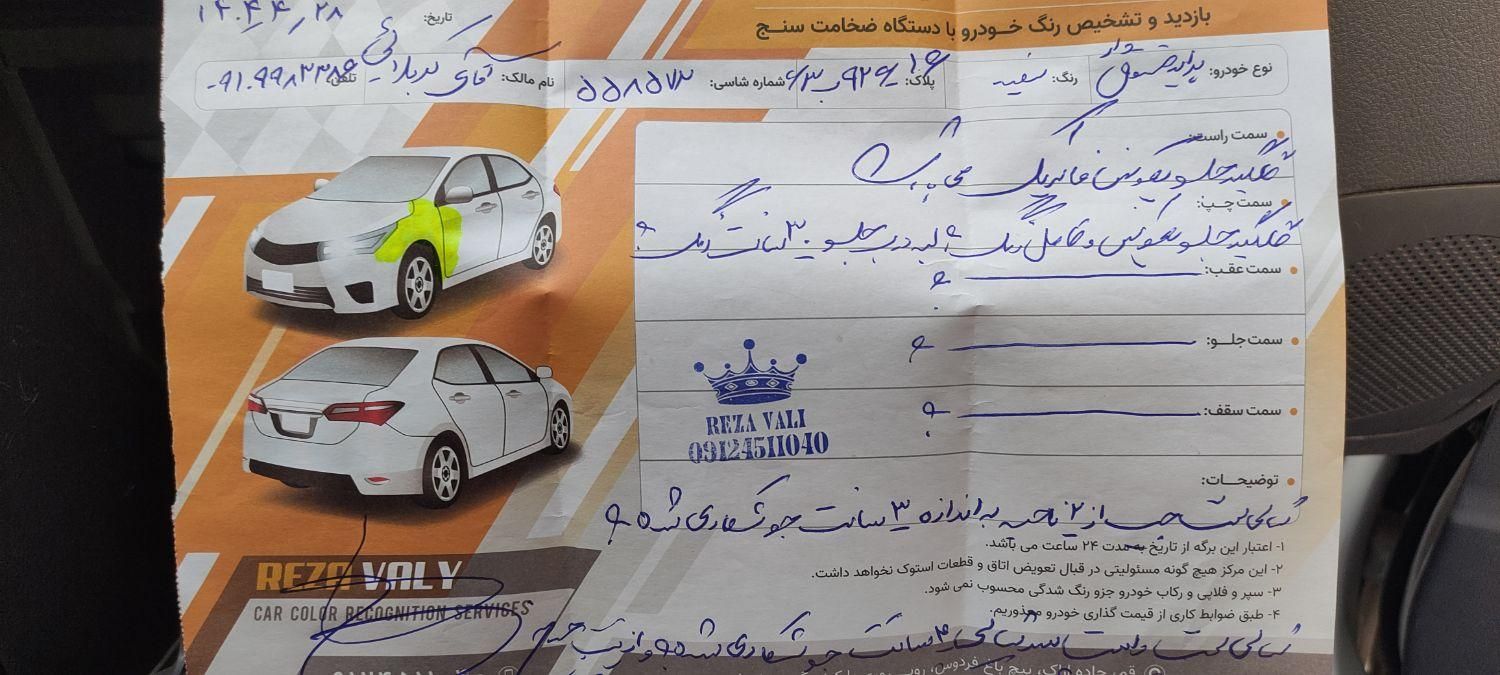 بازدید و تشخیص رنگ خـودرو با دستگاه ضخامت سنـج
تاریخ: ۱۴۰۴٫۴٫۲۸
نوع خودرو: پراید رنگ: سفید پلاک: شماره شاسی: ۵۵۸۵۷۳ نام مالک: آقای کربلائی تلفن: ۰۹۱۰۹۹۸۲۳۸۶
سمت راست:
گلگیر جلو تعویض فابریک می باشد
سمت چپ:
گلگیر جلو تعویض و کامل رنگ لبه درب جلو ۳۰ سانت رنگ
سمت عقب:
سمت جلـو:
سمت سقف:
REZA VALI
09124511040
توضیحـات:
از ۲ ناحیه به اندازه ۳ سانت جوشکاری شده
۱- اعتبار این برگه از تاریخ به مدت ۲۴ ساعت می باشد.
۲- این مرکز هیچ گونه مسئولیتی در قبال تعویض اتاق و قطعات استوک نخواهد داشت.
۳- سپر و فلاپی و رکاب خودرو جزو رنگ شدگی محسوب نمی شود.
۴- طبق ضوابط کاری از قیمت گذاری خودرو معذوریم.
REZA VALY
CAR COLOR RECOGNITION SERVICES
سانت جوشکاری شده و از